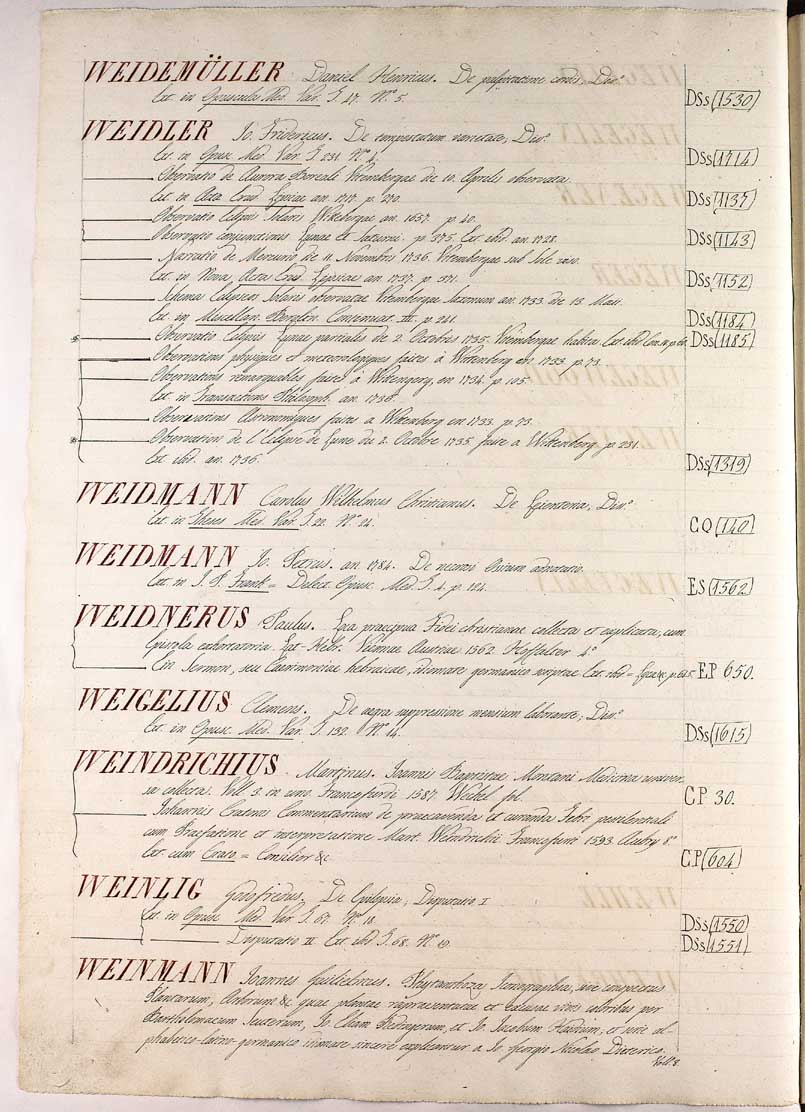 WEIDEMÜLLER Daniel Henricus. De palpitatione cordis, Diss.º
Ext. in Opuscula Med. Var. T. 47. Nº 5. DSs 1530
WEIDLER Jo. Fridericus. De temperatum varietate, Diss.º
Ext. in Opusc. Med. Var. T. 231. Nº DSs 1714
Observatio de Aurora Boreali Vitembergae de 10. Aprilis observata.
Ext. in Acta Erud. Lipsiae an. 1717. p. 270. DSs 1137
Observatio Eclipsis Solaris Witebergae an. 1637. p. 40.
Observatio conjunctionis Lunae et Saturni. p. 375. Ext. ibid. an. 1728. DSs 1143
Narratio de Mercurio de 11. Novembris 1736. Vitembergae sub Sole viso.
Ext. in Nova Acta Erud. Lipsiae an. 1737. p. 371. DSs 1152
Schema Eclipseos Solaris observatae Vitembergae Saxonum an. 1733. de 13. Maii.
Ext. in Miscellan. Berolin. Continuat. III. p. 241. DSs 1184
Observatio Eclipsis Lunae partialis de 2. Octobris 1735. Vitembergae habita. Ext. ibid. DSs 1185
Observations physiques et meteorologiques faites à Wittenberg en 1733. p. 73.
Observations remarquables faites à Wittenberg, en 1734. p. 105.
Ext. in Transactions Philosoph. an. 1736.
Observations Astronomiques faites a Wittenberg en 1733. p. 73.
Observation de l'Eclipse de Lune du 2. Octobre 1735. faite a Wittenberg. p. 231.
Ext. ibid. an. 1736. DSs 1319
WEIDMANN Carolus Wilhelmus Christianus. De Lienteria, Diss.º
Ext. in Theses Med. Var. T. 22. Nº 21. C.Q 140
WEIDMANN Jo. Petrus. an. 1784. De necrosi Ossium adnotatio.
Ext. in J. P. Frank = Delect. Opusc. Med. T. 4. p. 124. ES 1562
WEIDNERUS Paulus. Loca praecipua Fidei christianae collecta et explicata, cum
Epistola exhortatoria Lat-Hebr. Viennae Austriae 1562. Hofhalter 4º
Ein Sermon, seu Caeremoniae hebraicae, idiomate germanico scriptae Ext. ibid = Loca &c. p. E.P 650.
WEIGELIUS Clemens. De aegra suppressione mensium laborante, Diss.º
Ext. in Opusc. Med. Var. T. 132. Nº 14. DSs 1615
WEINDRICHIUS Martinus. Joannis Baptistae Montani Medicina univer-
sa collecta. Voll 3. in uno Francofurdi 1587. Wechel fol. C.P 30.
Johannis Cratonis Commentarium de praecavenda et curanda Febre pestilentiali
cum Praefatione et interpretatione Mart. Weindrichii Francofurt 1593. Aubry 8º
Ext. cum Crato = Consilior &c. C.P 604
WEINLIG Godofredus. De Epilepsia, Disputatio I
Ext. in Opusc. Med. Var. T. 67. Nº 18. DSs 1550
Disputatio II. Ext. ibid. T. 68. Nº 19. DSs 1551
WEINMANN Joannes Guilielmus. Phytanthoza Iconographia, sive conspectus
Plantarum, Arborum &c quae plantae repraesentatae et excusae vivis coloribus per
Bartholomaeum Seuterum, Jo. Eliam Ridingerum, et Jo. Jacobum Haidium, et serie al-
phabetico-latino-germanico idiomate sincere explicantur a Jo. Georgio Nicolao Dieterico.
Voll. 8.